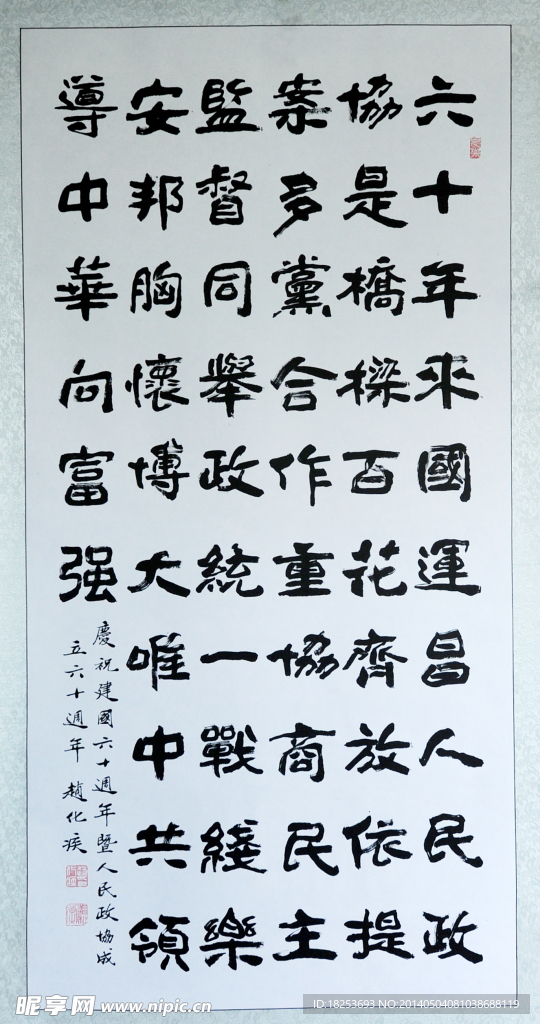 六十年來國運昌人民政
協是橋樑百花齊放依提
案多黨合作重協商民主
監督同舉政統一戰綫樂
安邦胸懷博大唯中共領
導中華向富强
慶祝建國六十週年暨人民政協成
立六十週年 趙化疾
昵享网 www.nipic.cn
ID:18253693 NO:20140504081038688119